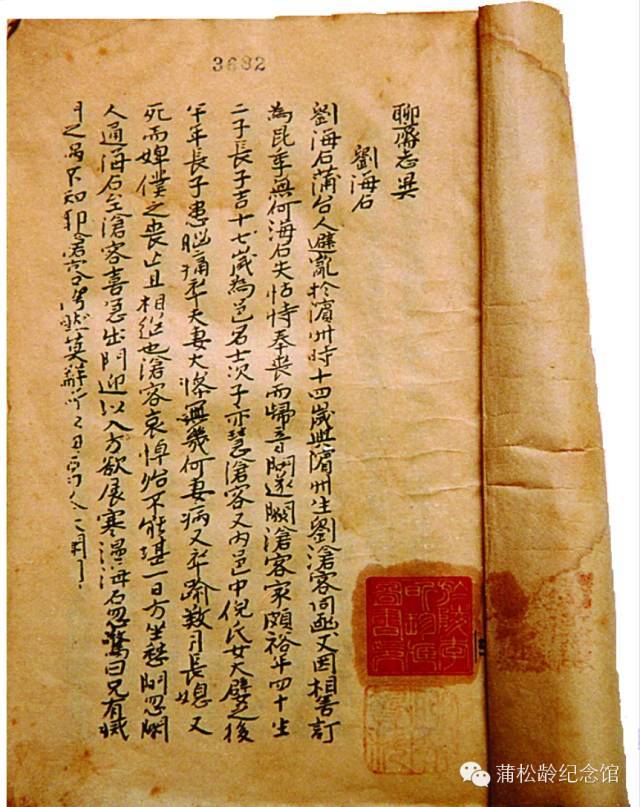 3682
聊齋志異
劉海石
劉海石蒲台人避亂於濱州時十四歲與濱州生劉滄客同函丈因相善訂
為昆季無何海石失怙恃奉喪而歸音問遂闕滄客家頗裕年四十生
二子長子吉十七歲為邑名士次子亦慧滄客又內邑中倪氏女大嬖之後
半年長子患腦痛卒夫妻大慘無幾何妻病又卒踰數月長媳又
死而婢僕之喪亡且相繼也滄客哀悼殆不能堪一日方坐愁間忽閽
人通海石至滄客喜急出門迎以入方欲展寒溫海石忽驚曰兄有滅
門之禍不知耶滄客愕然莫解所以
蒲松龄纪念馆